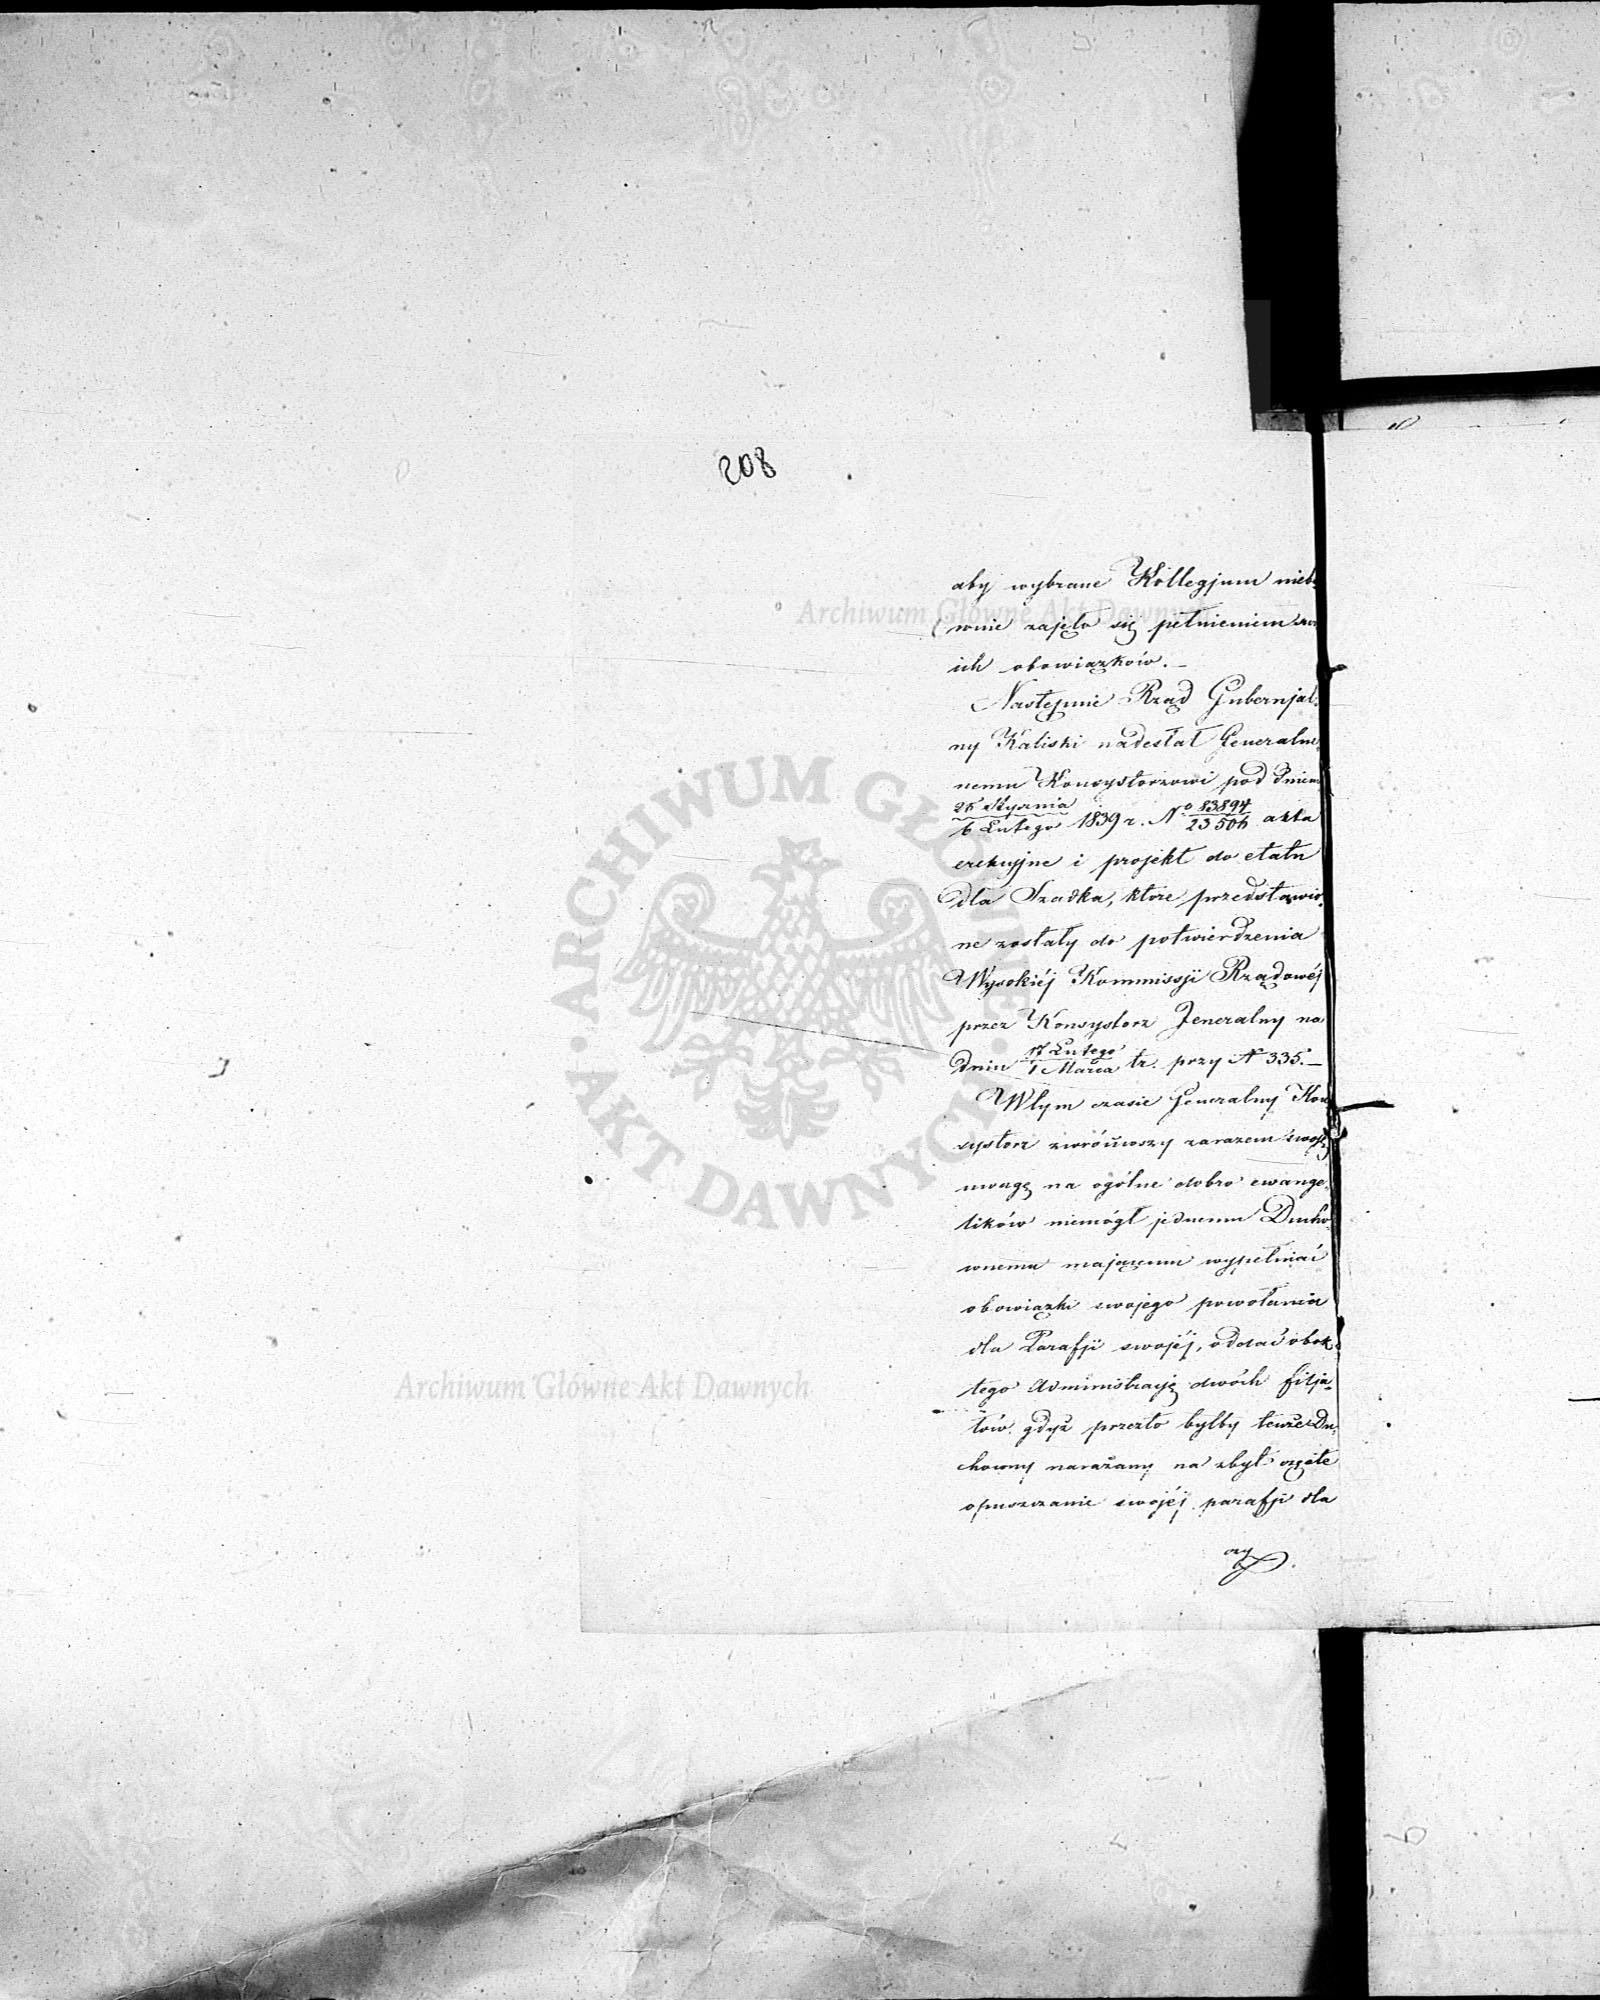 208
aby wybrane Kollegjum nieba
wnie zajęło się pełnieniem swo
ich obowiązków. —
Następnie Rząd Gubernjal-
ny Kaliski nadesłał Generalne-
nemu Konsystorzowi pod dniem
25 Stycznia
6 Lutego 1839 r. No 83894
23506 akta
erekcyjne i projekt do etatu
dla Szadka, które przedstawio-
ne zostały do potwierdzenia
Wysokiéj Kommissji Rządowéj
przez Konsystorz Jeneralny na
dniu 17 Lutego
1 Marca tr. przy N 335. —
W tym czasie Generalny Kon
systorz zwróciwszy zarazem swoję
uwagę na ogólne dobro ewange-
lików niemógł jednemu Ducho-
wnemu mającemu wypełniać
obowiązki swojego powołania
dla Parafji swojéj, oddać obok
tego Administracją dwóch filja-
łów, gdyż przezto byłby tenże Du-
chowny narażany na zbyt częste
opuszczanie swojéj parafji dla
czy
Archiwum Główne Akt Dawnych
ARCHIWUM GŁÓWNE AKT DAWNYCH
Archiwum Główne Akt Dawnych